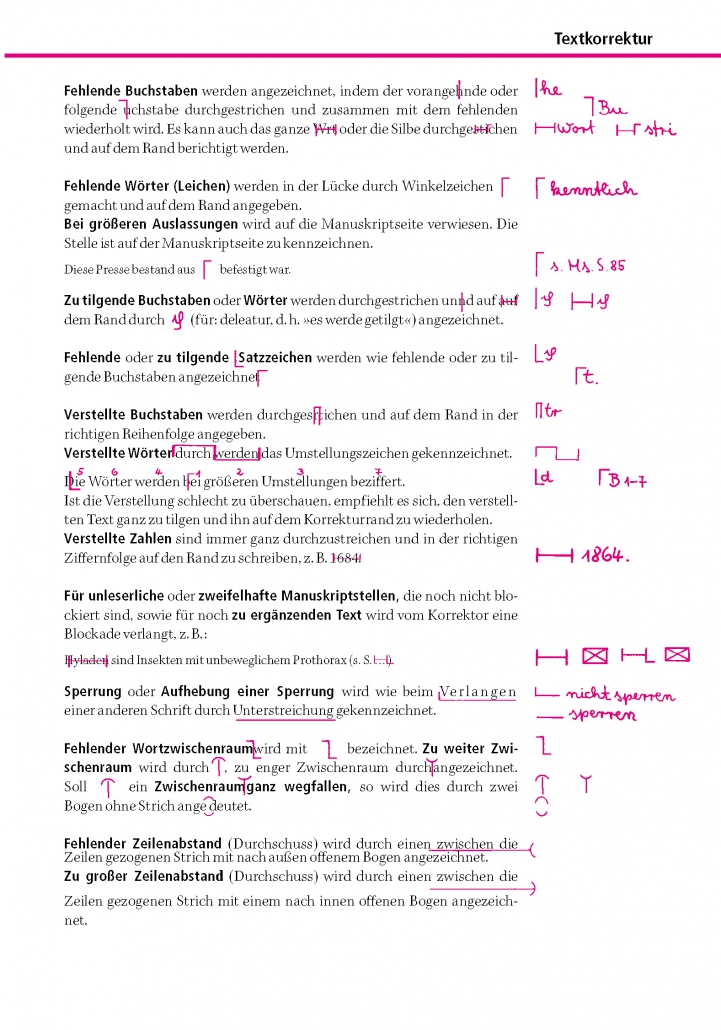 Textkorrektur
Fehlende Buchstaben werden angezeichnet, indem der vorangehnde oder |he
folgende uchstabe durchgestrichen und zusammen mit dem fehlenden Bu
wiederholt wird. Es kann auch das ganze Wrt oder die Silbe durchgestrchen Wort stri
und auf dem Rand berichtigt werden.
Fehlende Wörter (Leichen) werden in der Lücke durch Winkelzeichen kenntlich
gemacht und auf dem Rand angegeben.
Bei größeren Auslassungen wird auf die Manuskriptseite verwiesen. Die
Stelle ist auf der Manuskriptseite zu kennzeichnen.
Diese Presse bestand aus befestigt war. s. Ms. S. 85
Zu tilgende Buchstaben oder Wörter werden durchgestrichen unnd auf auf
dem Rand durch (für: deleatur, d. h. »es werde getilgt«) angezeichnet.
Fehlende oder zu tilgende Satzzeichen werden wie fehlende oder zu til-
gende Buchstaben angezeichnet t.
Verstellte Buchstaben werden durchgesrtichen und auf dem Rand in der tr
richtigen Reihenfolge angegeben.
Verstellte Wörter durch werden das Umstellungszeichen gekennzeichnet.
5 6 4 1 2 3 7
Die Wörter werden bei größeren Umstellungen beziffert. d B 1–7
Ist die Verstellung schlecht zu überschauen, empfiehlt es sich, den verstell-
ten Text ganz zu tilgen und ihn auf dem Korrekturrand zu wiederholen.
Verstellte Zahlen sind immer ganz durchzustreichen und in der richtigen
Ziffernfolge auf den Rand zu schreiben, z. B. 1684. 1864.
Für unleserliche oder zweifelhafte Manuskriptstellen, die noch nicht blo-
ckiert sind, sowie für noch zu ergänzenden Text wird vom Korrektor eine
Blockade verlangt, z. B.:
Hyladen sind Insekten mit unbeweglichem Prothorax (s. S. ...).
Sperrung oder Aufhebung einer Sperrung wird wie beim Verlangen nicht sperren
einer anderen Schrift durch Unterstreichung gekennzeichnet. sperren
Fehlender Wortzwischenraumwird mit bezeichnet. Zu weiter Zwi-
schenraum wird durch , zu enger Zwischenraum durch angezeichnet.
Soll ein Zwischenraum ganz wegfallen, so wird dies durch zwei
Bogen ohne Strich ange deutet.
Fehlender Zeilenabstand (Durchschuss) wird durch einen zwischen die
Zeilen gezogenen Strich mit nach außen offenem Bogen angezeichnet.
Zu großer Zeilenabstand (Durchschuss) wird durch einen zwischen die
Zeilen gezogenen Strich mit einem nach innen offenen Bogen angezeich-
net.